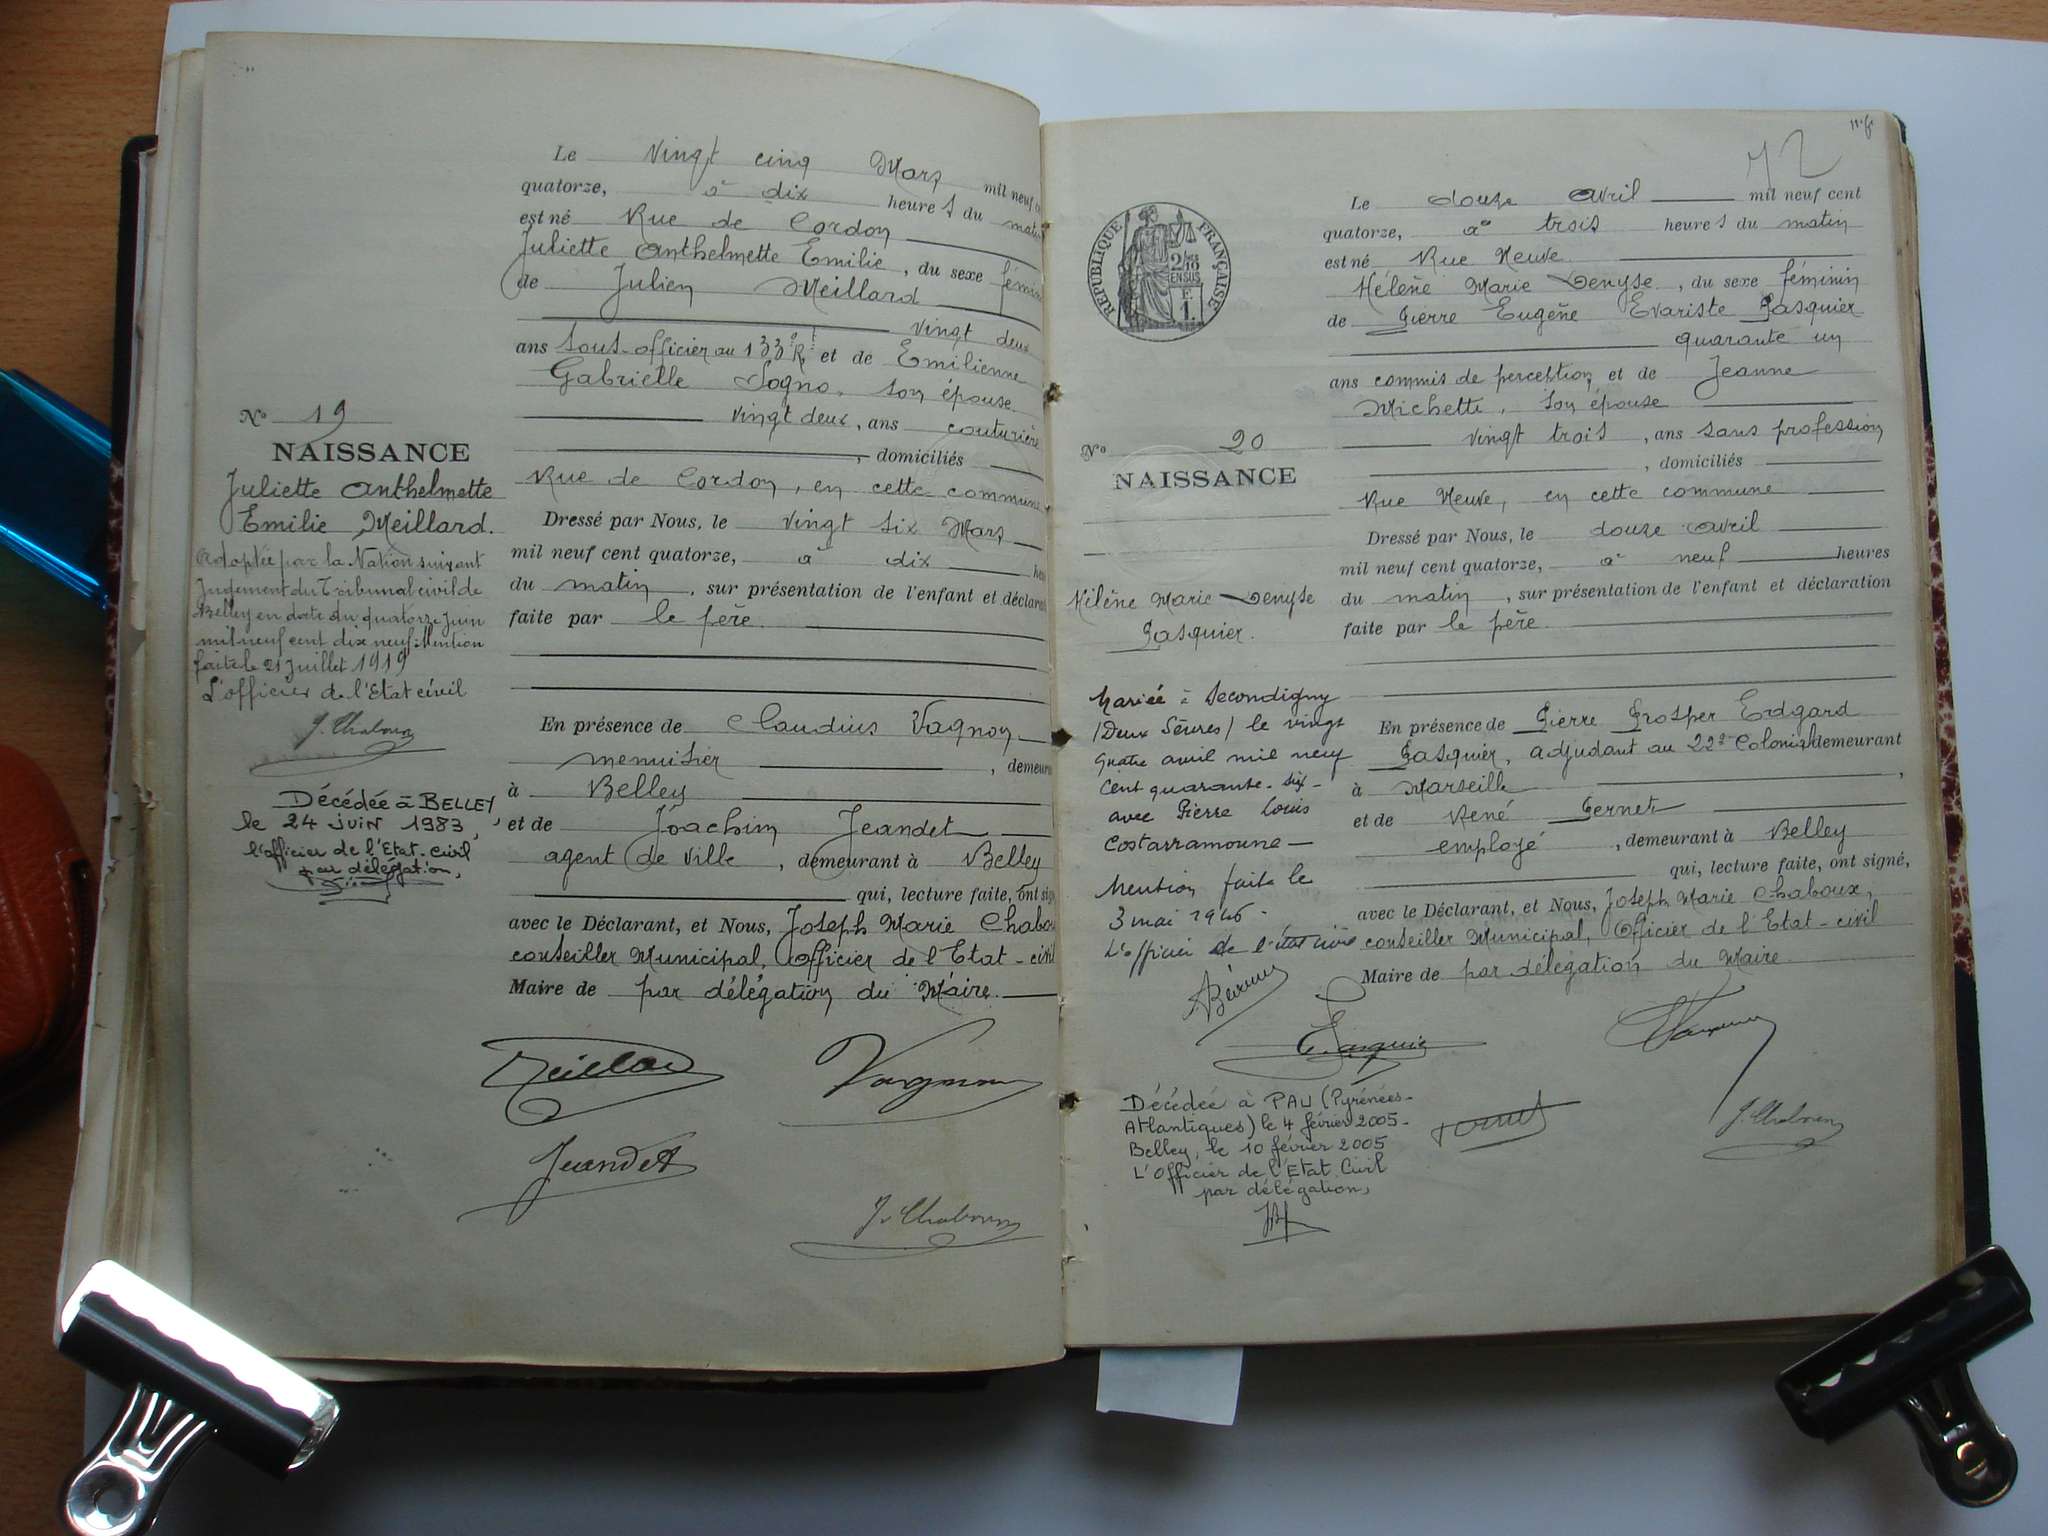 Le Vingt cinq Mars mil neuf
quatorze, à dix heures du matin
est né Rue de Cordon
Juliette Anthelmette Emilie, du sexe féminin
de Julien Meillard
vingt deux
ans sous-officier au 133e R.I et de Emilienne
Gabrielle Sogno, son épouse
vingt deux, ans couturière
, domiciliés
Rue de Cordon, en cette commune
Dressé par Nous, le vingt six Mars
mil neuf cent quatorze, à dix heu
du matin, sur présentation de l'enfant et déclara
faite par le père.
En présence de Claudius Vagnon
menuisier, demeura
à Belley
et de Joachim Jeandet
agent de ville, demeurant à Belley
qui, lecture faite, ont sig
avec le Déclarant, et Nous, Joseph Marie Chabou
conseiller Municipal, Officier de l'Etat-civil
Maire de par délégation du Maire.
Vagnon
Jeandet
J. Chaboux
N° 19
NAISSANCE
Juliette Anthelmette
Emilie Meillard.
Adoptée par la Nation suivant
Jugement du Tribunal civil de
Belley en date du quatorze Juin
mil neuf cent dix neuf. Mention
faite le 21 Juillet 1919
L'officier de l'Etat civil
J. Chaboux
Décédée à BELLEY,
le 24 JUIN 1983,
l'officier de l'Etat-civil
par délégation,
72
REPUBLIQUE FRANÇAISE
2/10
EN SUS
F.
1.
Le douze avril mil neuf cent
quatorze, à trois heures du matin
est né Rue Neuve
Hélène Marie Denyse, du sexe féminin
de Pierre Eugène Evariste Pasquier
quarante un
ans commis de perception et de Jeanne
Michette, son épouse
vingt trois, ans sans profession
, domiciliés
Rue Neuve, en cette commune
Dressé par Nous, le douze avril
mil neuf cent quatorze, à neuf heures
du matin, sur présentation de l'enfant et déclaration
faite par le père.
En présence de Pierre Prosper Edgard
Pasquier, adjudant au 22e Colonial demeurant
à Marseille,
et de René Pernet
employé, demeurant à Belley
qui, lecture faite, ont signé,
avec le Déclarant, et Nous, Joseph Marie Chaboux,
conseiller Municipal, Officier de l'Etat-civil
Maire de par délégation du Maire.
E. Pasquier
Pernet
J. Chaboux
N° 20
NAISSANCE
Hélène Marie Denyse
Pasquier.
Mariée à Secondigny
(Deux Sèvres) le vingt
quatre avril mil neuf
cent quarante-six-
avec Pierre Louis
Costarramoune-
Mention faite le
3 mai 1946-
L'officier de l'état civil
Décédée à PAU (Pyrénées-
Atlantiques) le 4 février 2005-
Belley, le 10 février 2005
L'Officier de l'Etat Civil
par délégation,